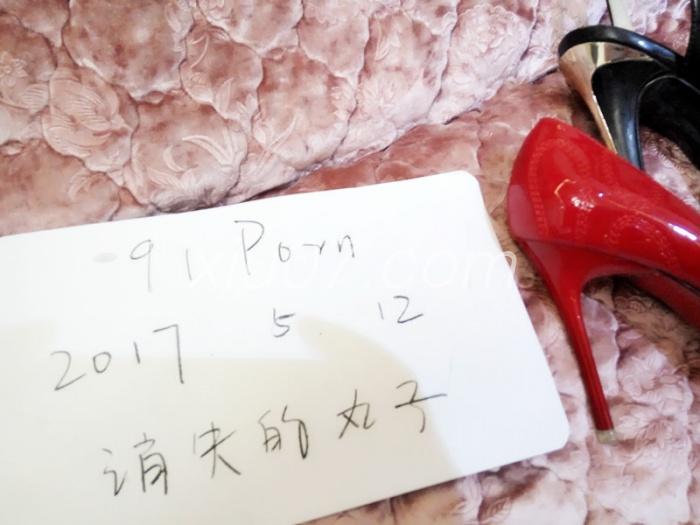 91 Porn
xju07.com
2017 5 12
消失的丸子